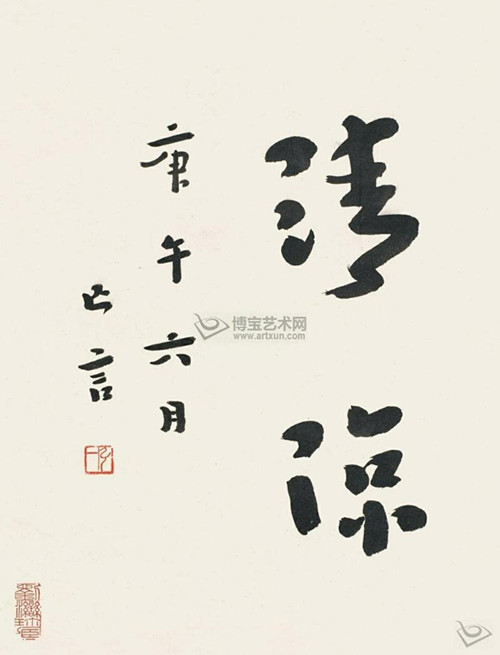 清涼
庚午六月
亡言
博宝艺术网
www.artxun.com